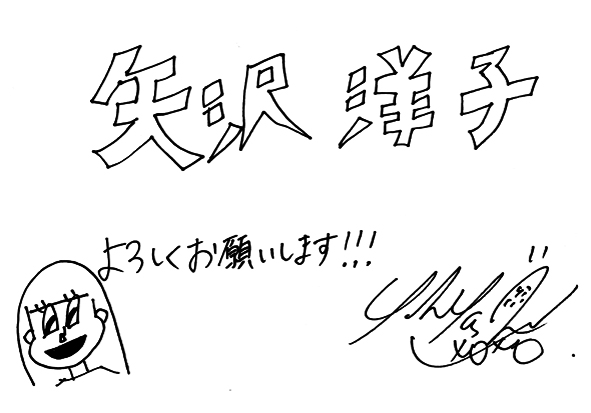 矢沢 洋子
よろしくお願いします!!!
xoxo